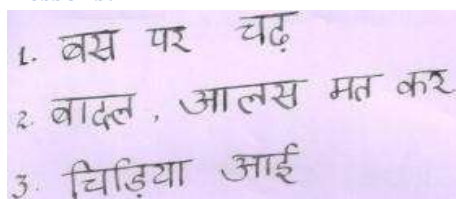 1. बस पर चढ़
2. बादल , आलस मत कर
3. चिड़िया आई